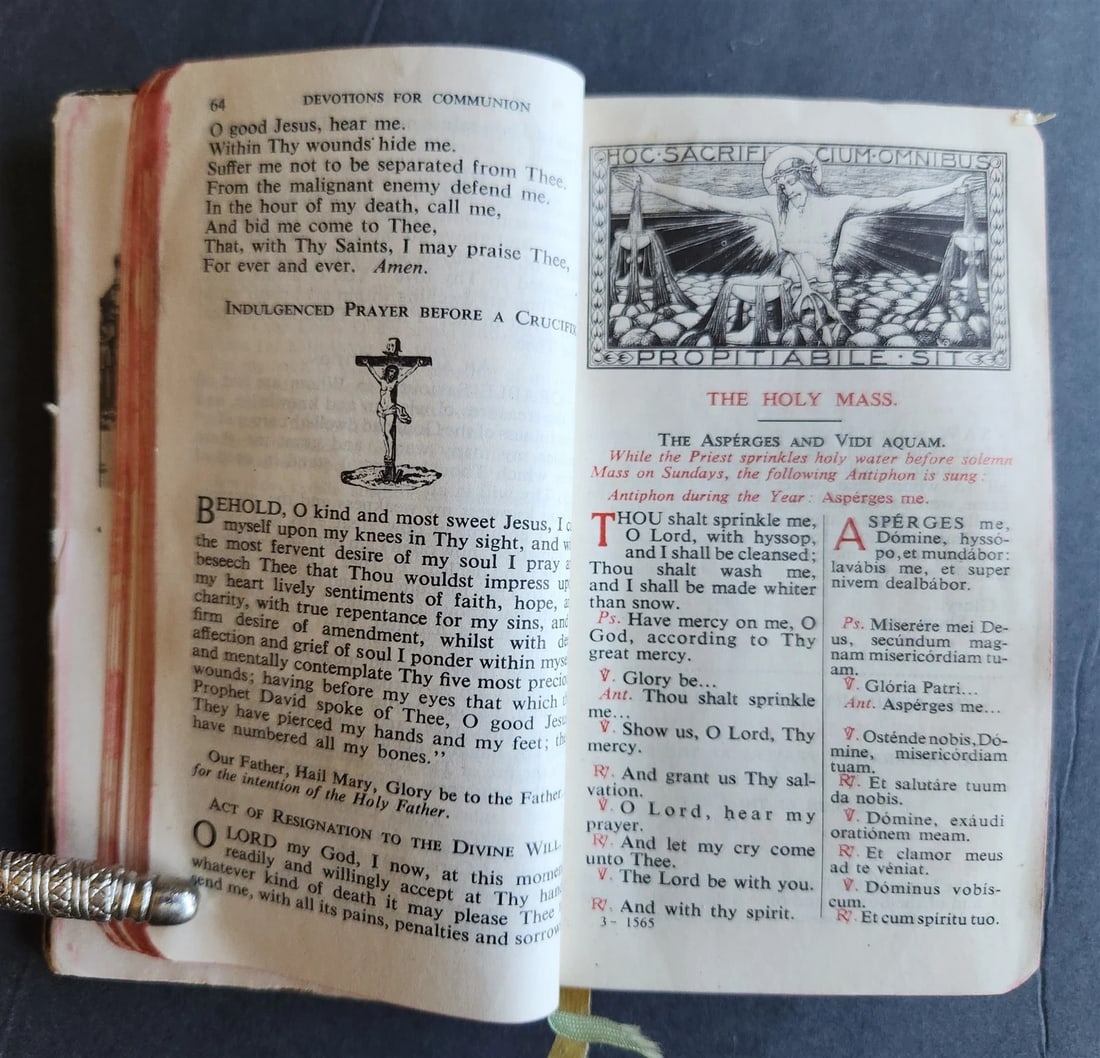 64 DEVOTIONS FOR COMMUNION
O good Jesus, hear me.
Within Thy wounds hide me.
Suffer me not to be separated from Thee.
From the malignant enemy defend me.
In the hour of my death, call me,
And bid me come to Thee,
That, with Thy Saints, I may praise Thee,
For ever and ever. Amen.
INDULGENCED PRAYER BEFORE A CRUCIFIX
BEHOLD, O kind and most sweet Jesus, I
myself upon my knees in Thy sight, and
the most fervent desire of my soul I pray
beseech Thee that Thou wouldst impress
my heart lively sentiments of faith, hope,
charity, with true repentance for my sins, and
firm desire of amendment, whilst with
affection and grief of soul I ponder within
and mentally contemplate Thy five most
wounds; having before my eyes that which
Prophet David spoke of Thee, O good
They have pierced my hands and my feet;
have numbered all my bones.”
Our Father, Hail Mary, Glory be to the Father
for the intention of the Holy Father.
ACT OF RESIGNATION TO THE DIVINE WILL
O LORD my God, I now, at this
readily and willingly accept at Thy
whatever kind of death it may please Thee
send me, with all its pains, penalties and
HOC·SACRIFICIUM·OMNIBUS
PROPITIABILE·SIT
THE HOLY MASS.
THE ASPÉRGES AND VIDI AQUAM.
While the Priest sprinkles holy water before solemn
Mass on Sundays, the following Antiphon is sung:
Antiphon during the Year: Aspérges me.
THOU shalt sprinkle me,
O Lord, with hyssop,
and I shall be cleansed;
Thou shalt wash me,
and I shall be made whiter
than snow.
Ps. Have mercy on me, O
God, according to Thy
great mercy.
℣. Glory be...
Ant. Thou shalt sprinkle
me...
℣. Show us, O Lord, Thy
mercy.
℟. And grant us Thy sal-
vation.
℣. O Lord, hear my
prayer.
℟. And let my cry come
unto Thee.
℣. The Lord be with you.
℟. And with thy spirit.
3 - 1565
ASPÉRGES me,
Dómine, hyssó-
po, et mundábor:
lavábis me, et super
nivem dealbábor.
Ps. Miserére mei De-
us, secúndum mag-
nam misericórdiam tu-
am.
℣. Glória Patri...
Ant. Aspérges me...
℣. Osténde nobis, Dó-
mine, misericórdiam
tuam.
℟. Et salutáre tuum
da nobis.
℣. Dómine, exáudi
oratiónem meam.
℟. Et clamor meus
ad te véniat.
℣. Dóminus vobís-
cum.
℟. Et cum spíritu tuo.